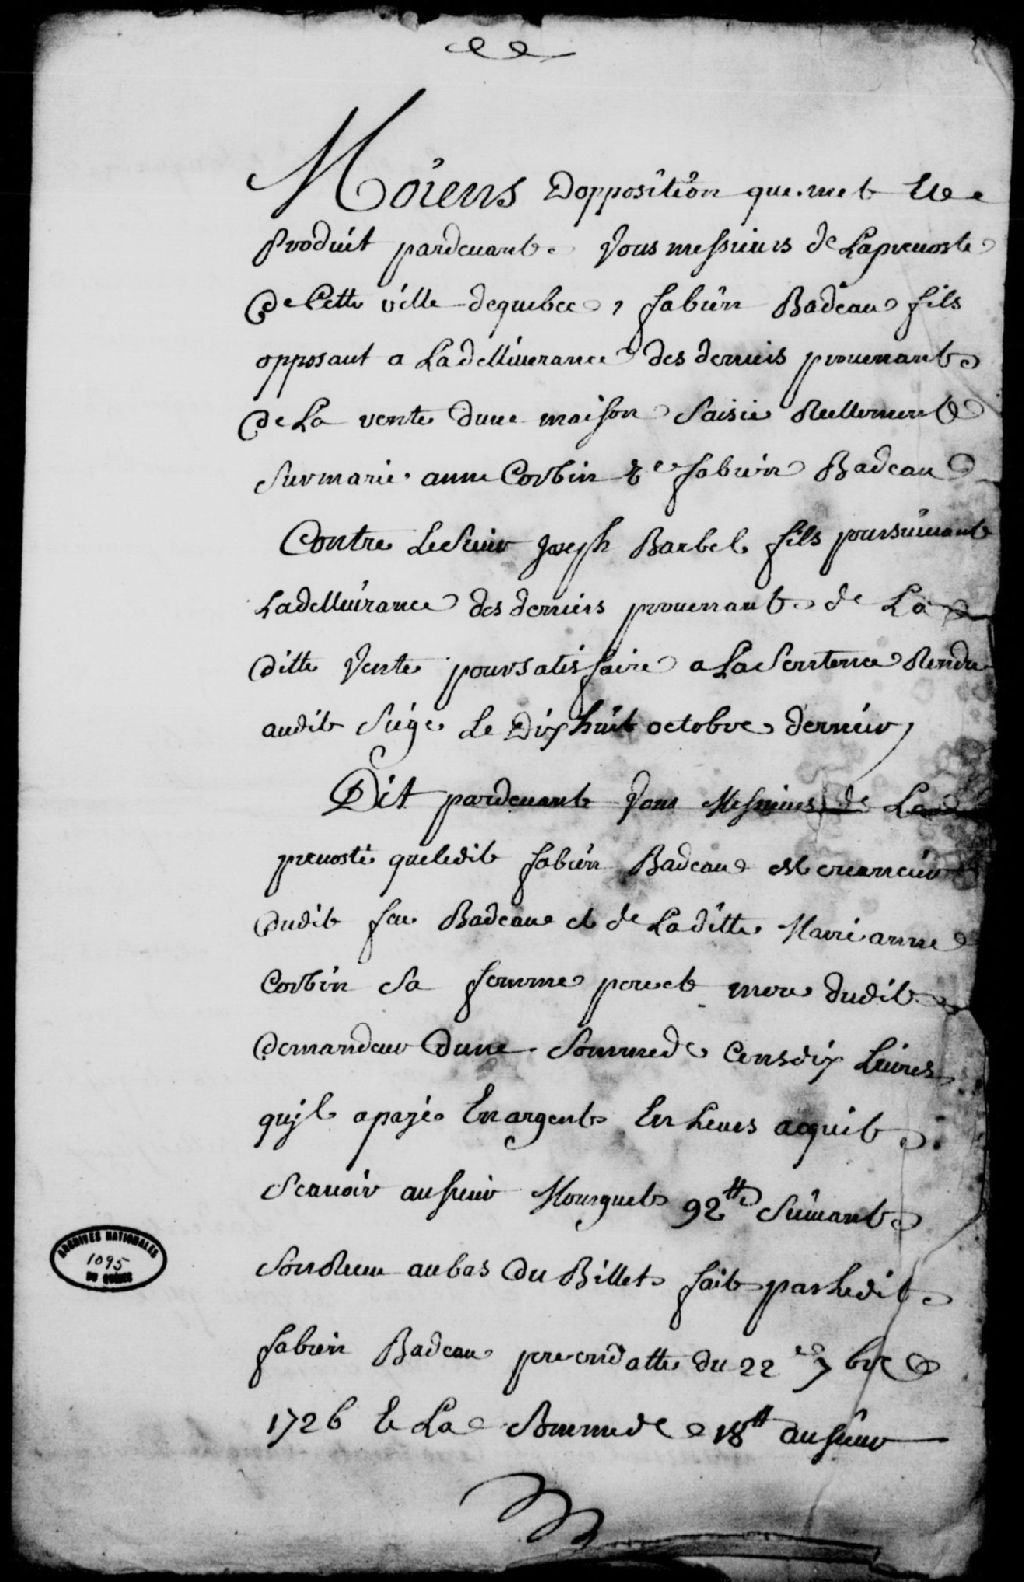 Moiens dopposition que met Et
Produit pardevant Vous messieurs de Laprevosté
De Cette ville dequebec, fabien Badeau fils
opposant a La dellivrance des deniers provenant
de La vente dune maison Saisie Réellement
Sur marie anne Corbin Ve fabien Badeau
Contre Le Sieur Joseph Barbel fils poursuivant
La dellivrance des deniers provenant de La
ditte Vente pour Satisfaire a La Sentence Rendu
audit Siége Le Dix huit octobre dernier
Dit pardevant Vous Messieurs de La
prevosté que ledit fabien Badeau est creancier
dudit feu Badeau et de La ditte Marie anne
Corbin Sa femme pere et mere dudit
demandeur Dune Somme de Cens dix Livres
quil a payé En argent En Leurs acquit
Scavoir au Sieur Mourguet 92tt Suivant
Son Recu au bas Du Billet fait par Ledit
fabien Badeau pere en datte du 22e 7bre
1726 Et La Somme de 18tt au Sieur
ARCHIVES NATIONALES
1095
DU QUÉBEC